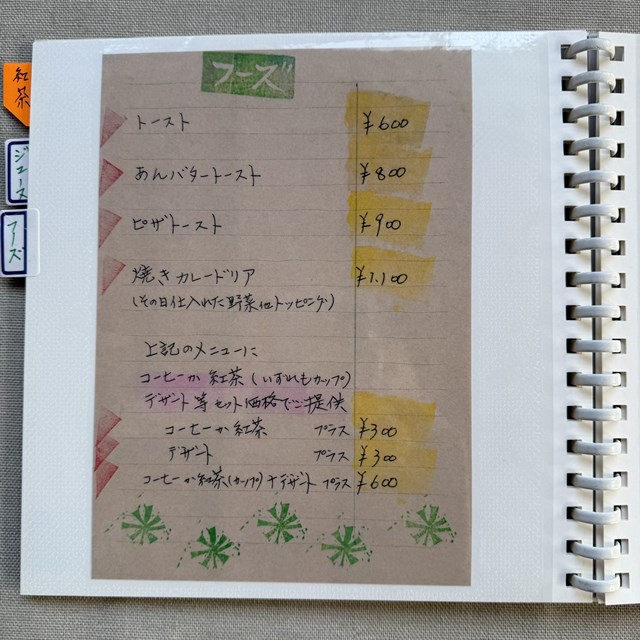 フーズ
トースト ¥600
あんバタートースト ¥800
ピザトースト ¥900
焼きカレードリア ¥1.100
(その日仕入れた野菜他トッピング)
上記のメニューに
コーヒーか紅茶(いずれもカップ)
デザート等セット価格でご提供
コーヒーか紅茶 プラス ¥300
デザート プラス ¥300
コーヒーか紅茶(カップ)+デザート プラス ¥600
紅茶
ジュース
フーズ